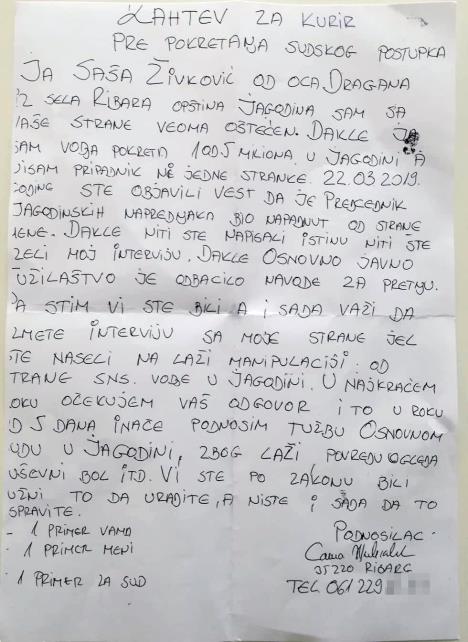 ZAHTEV ZA KURIR
PRE POKRETANJA SUDSKOG POSTUPKA
JA SAŠA ŽIVKOVIĆ OD OCA DRAGANA
IZ SELA RIBARA OPŠTINA JAGODINA SAM SA
VAŠE STRANE VEOMA OŠTEĆEN. DAKLE JA
SAM VOĐA POKRETA 1 OD 5 MILIONA U JAGODINI A
NISAM PRIPADNIK NE JEDNE STRANKE. 22.03 2019.
GODINE STE OBJAVILI VEST DA JE PREDSEDNIK
JAGODINSKIH NAPREDNJAKA BIO NAPADNUT OD STRANE
MENE. DAKLE NITI STE NAPISALI ISTINU NITI STE
UZELI MOJ INTERVJU. DAKLE OSNOVNO JAVNO
TUŽILAŠTVO JE ODBACILO NAVODE ZA PRETNJU.
SA STIM VI STE BILI A I SADA VAŽI DA
UZMETE INTERVIJU SA MOJE STRANE JEL
STE NASELI NA LAŽI MANIPULACIJI OD
STRANE SNS. VOĐE U JAGODINI. U NAJKRAĆEM
ROKU OČEKUJEM VAŠ ODGOVOR I TO U ROKU
OD 5 DANA INAČE PODNOSIM TUŽBU OSNOVNOM
SUDU U JAGODINI, ZBOG LAŽI POVREDU OGLEDA
DUŠEVNI BOL ITD. VI STE PO ZAKONU BILI
DUŽNI TO DA URADITE, A NISTE I SADA DA TO
ISPRAVITE.
- 1 PRIMER VAMA
- 1 PRIMER MENI
- 1 PRIMER ZA SUD
PODNOSILAC -
35220 RIBARE
TEL 061 229